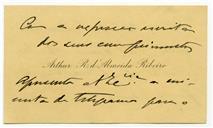 Com a expressão escrita
dos seus cumprimentos
Arthur R. d'Almeida Ribeiro
Apresenta a V. Ex.cia a mi-
nuta do telegrama para o